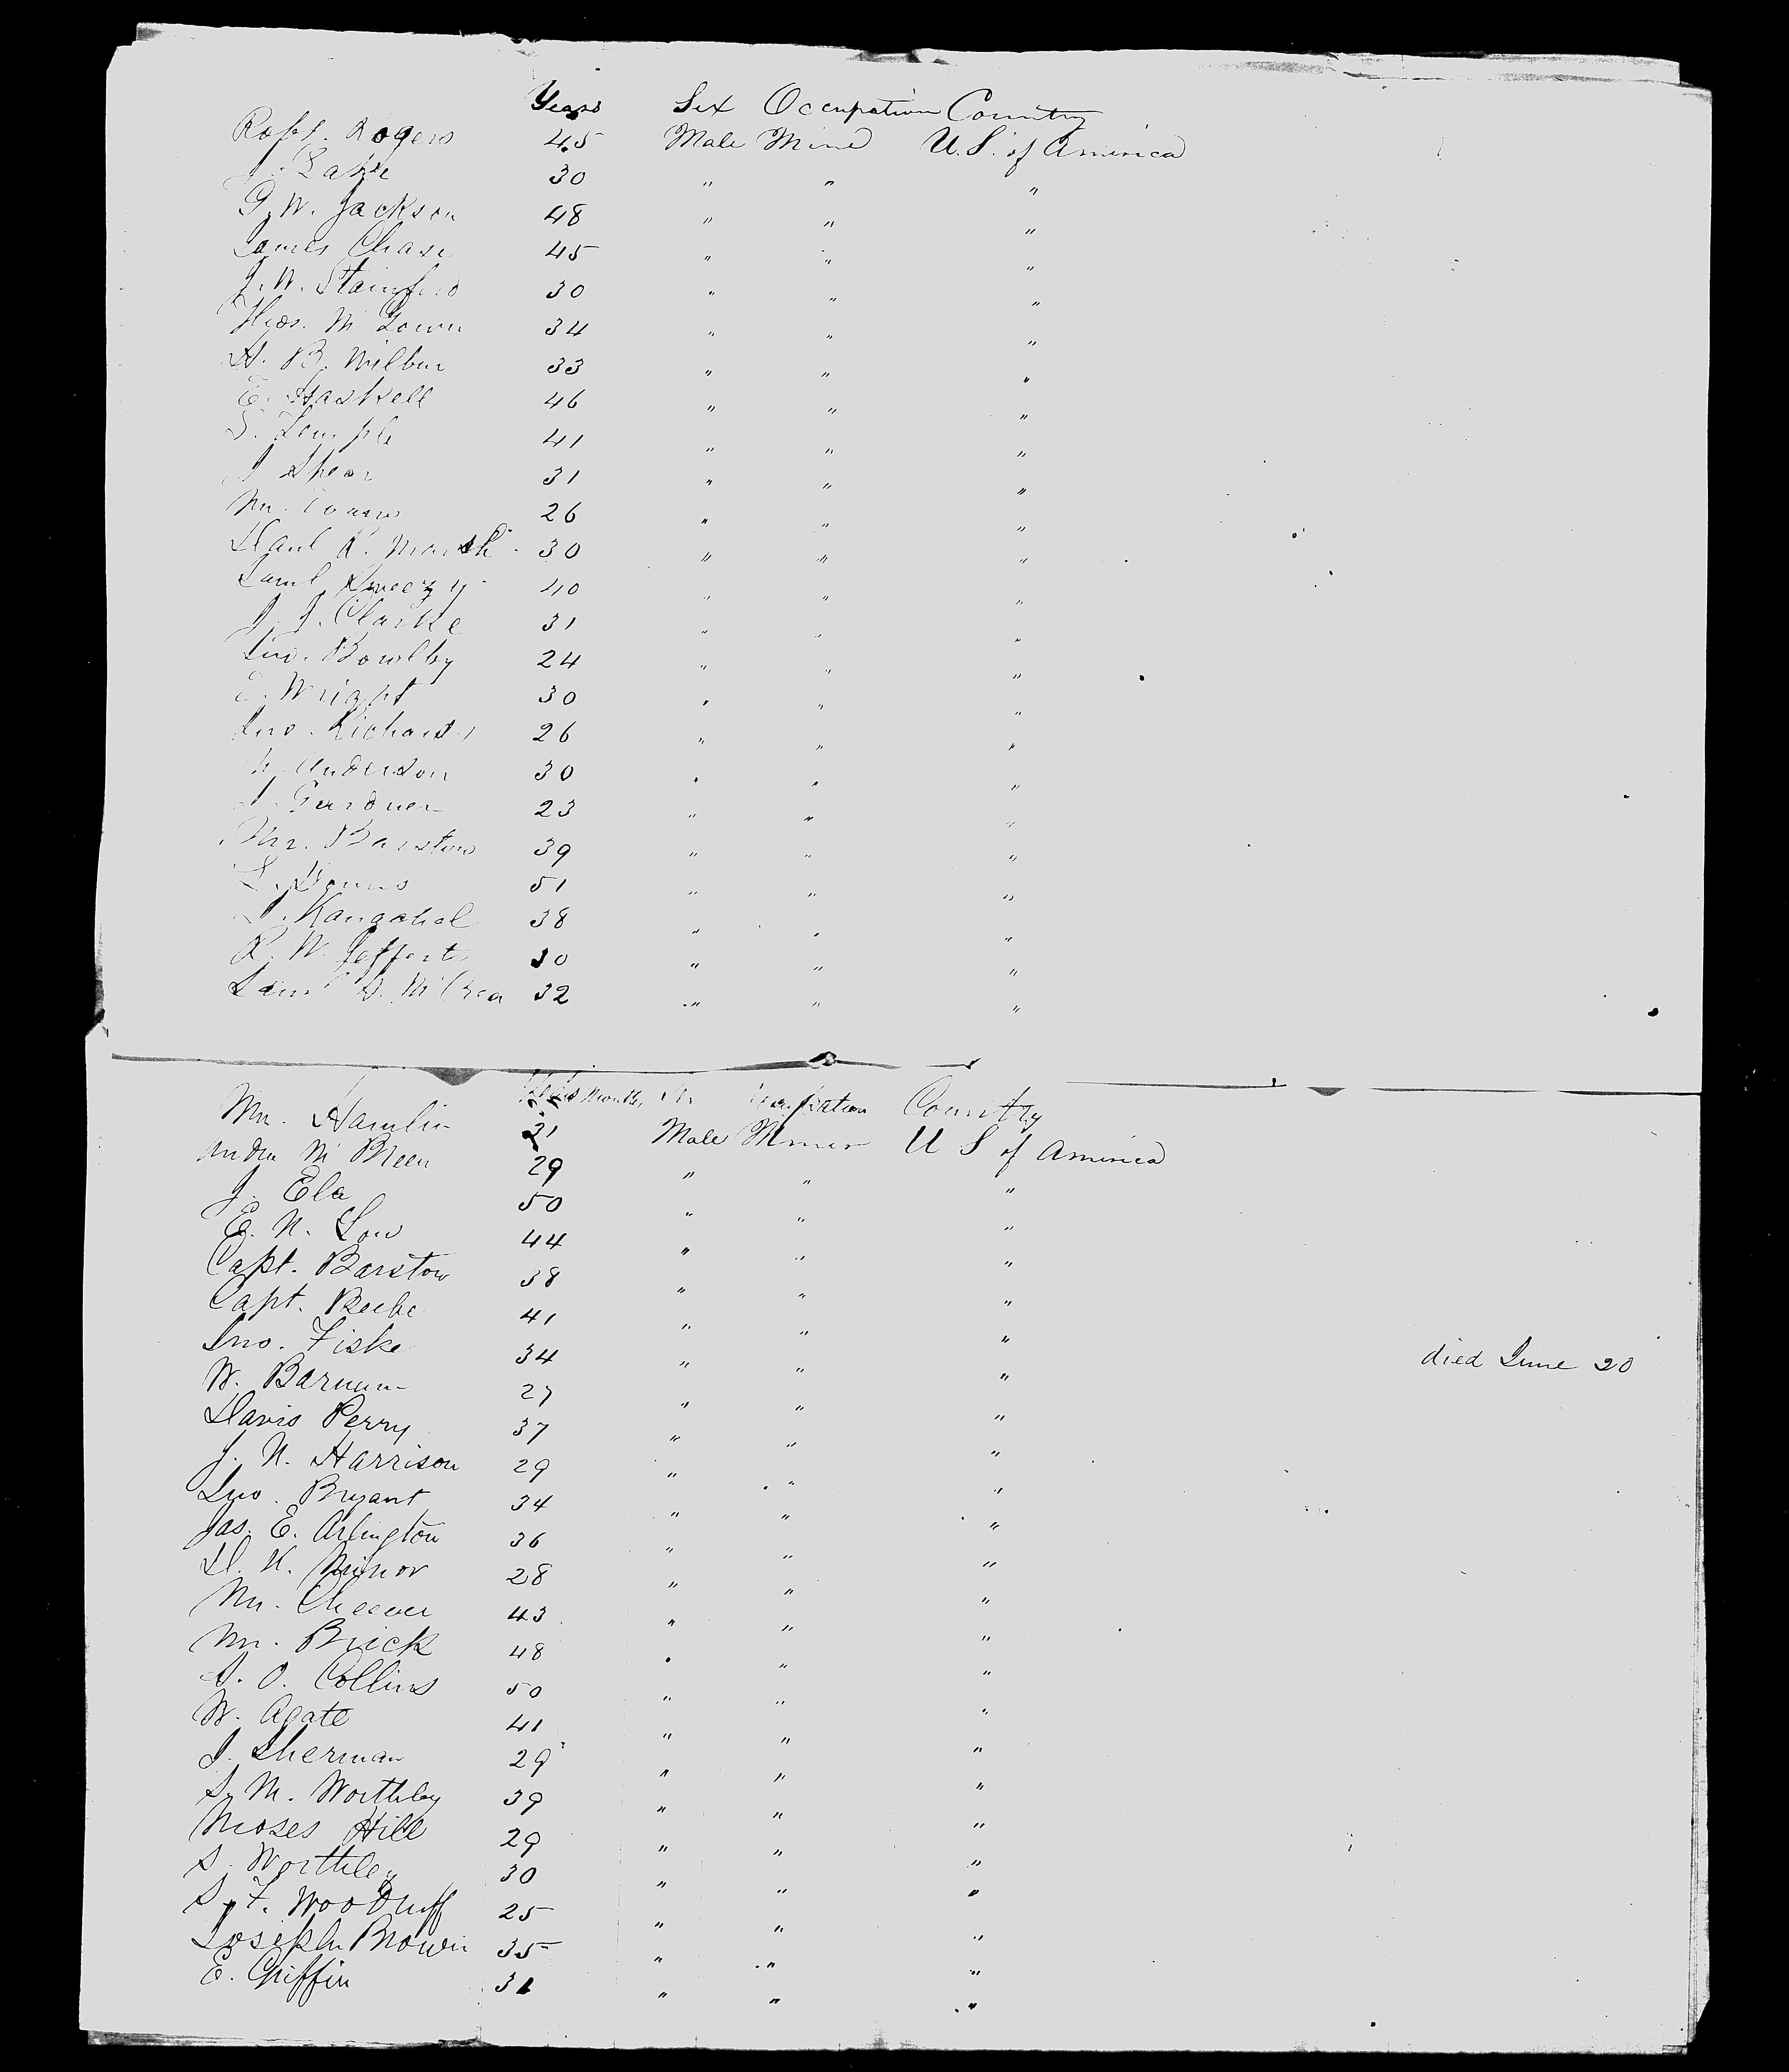 Years Sex Occupation Country
Robt. Rogers 45 Male Mine U.S. of America
J. Lake 30 " " "
G. W. Jackson 48 " " "
James Chase 45 " " "
J. W. Stainford 30 " " "
Thos. M Gown 34 " " "
H. B. Wilbur 33 " " "
E. Haskell 46 " " "
S. Temple 41 " " "
J Shear 31 " " "
Mr. 26 " " "
Danl R. Marsh 30 " " "
Saml Sweezy 40 " " "
J. J. Clarke 31 " " "
Jno. Bowlby 24 " " "
E. Wright 30 " " "
Jno. Richards 26 " " "
Anderson 30 " " "
J. Gardner 23 " " "
Mr. Barstow 39 " " "
51 " " "
38 " " "
R. W. 30 " " "
Saml S. McCrea 32 " " "
Years Months Sex Occupation Country
Mr. Hamlin 21 Male Miner U S of America
Andrew Mc Breen 29 " " "
J. Ela 50 " " "
E. N. Low 44 " " "
Capt. Barstow 38 " " "
Capt. Beebe 41 " " "
Jno. Fiske 34 " " " died June 20
W. Barnum 27 " " "
Davis Perry 37 " " "
J. N. Harrison 29 " " "
Jno. Bryant 34 " " "
Jas. E. Arlington 36 " " "
D. K. Minor 28 " " "
Mr. Cheever 43 " " "
Mr. Brick 48 " " "
S. O. Collins 50 " " "
W. Agate 41 " " "
J. Sherman 29 " " "
S. M. Worthley 39 " " "
Moses Hill 29 " " "
S. Worthley 30 " " "
S. F. Woodruff 25 " " "
Joseph Brown 35 " " "
E. Griffin 31 " " "